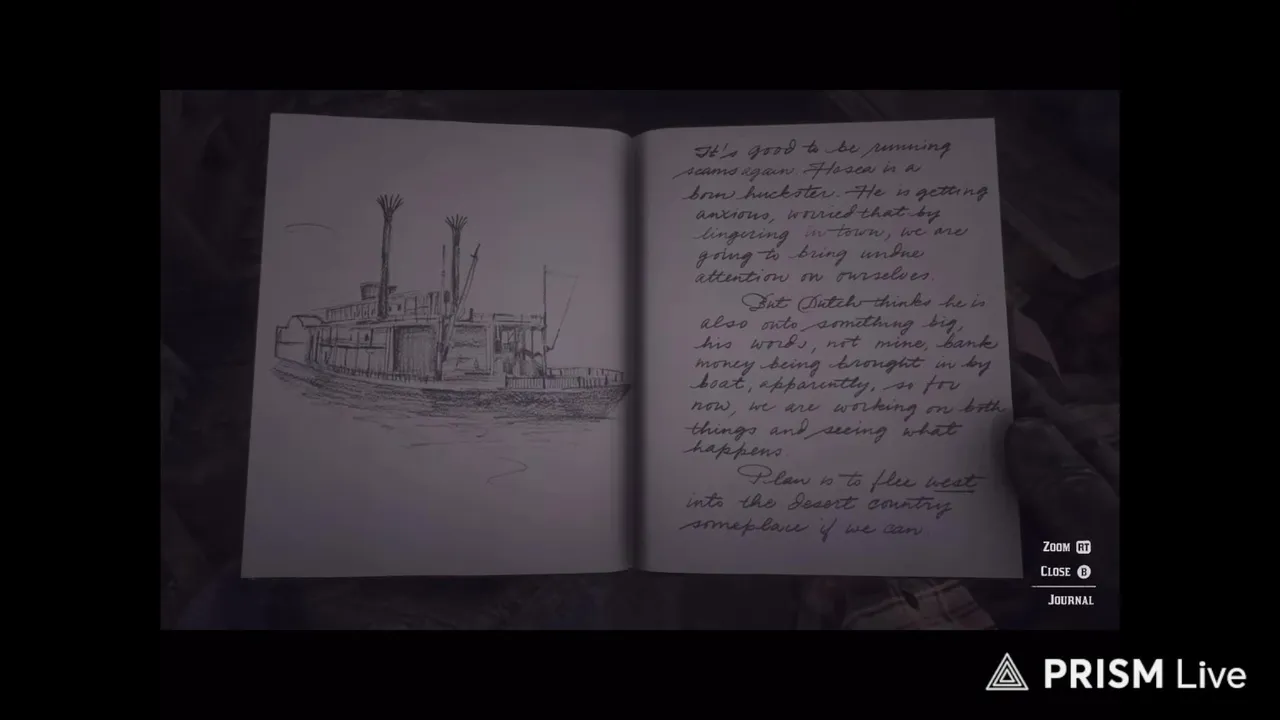 It's good to be running
scams again. Hosea is a
born huckster. He is getting
anxious, worried that by
lingering in town, we are
going to bring undue
attention on ourselves.
But Dutch thinks he is
also onto something big,
his words, not mine, bank
money being brought in by
boat, apparently, so for
now, we are working on both
things and seeing what
happens.
Plan is to flee west
into the desert country
someplace if we can.
ZOOM RT
CLOSE B
JOURNAL
PRISM Live